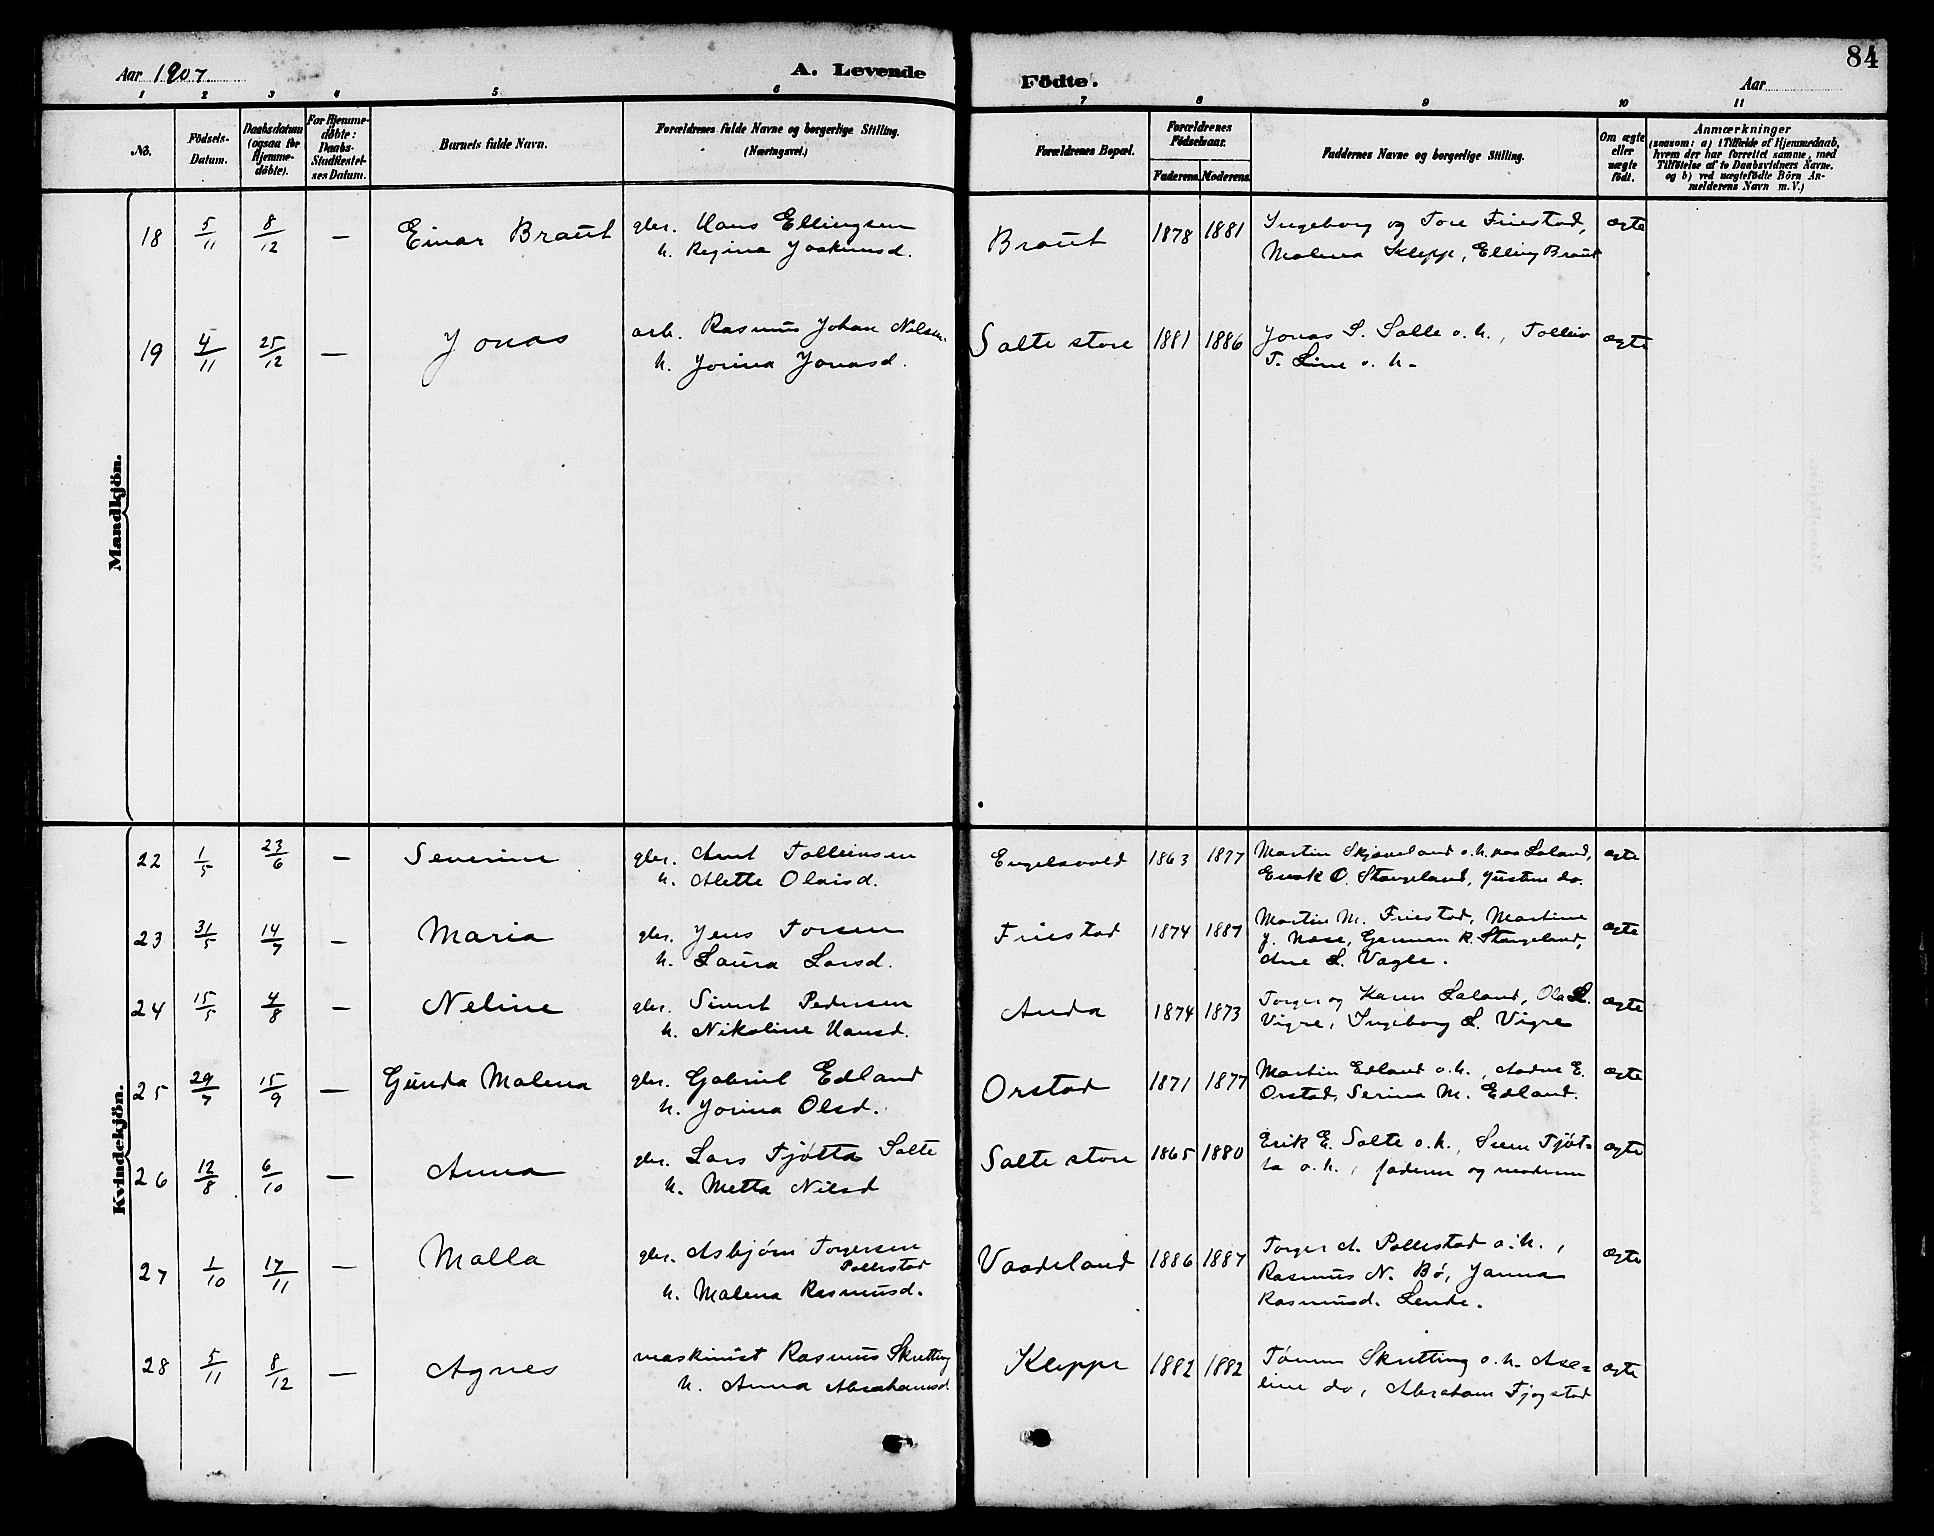 84
Aar 1907. A. Levende Födte. Aar
1 2 3 4 5 6 7 8 9 10 11
No.
Födsels-
Datum.
Daabsdatum
(ogsaa for
Hjemme-
døbte).
For Hjemme-
døbte:
Daabs-
Stadfæstel-
ses Datum.
Barnets fulde Navn.
Forældrenes fulde Navne og borgerlige Stilling.
(Næringsvei.)
Forældrenes Bopæl.
Forældrenes
Födselsaar.
Faderens. Moderens.
Faddernes Navne og borgerlige Stilling.
Om ægte
eller
uægte
födt.
Anmærkninger
(saasom: a) i Tilfælde af Hjemmedaab,
hvem der har forrettet samme, med
Tilföielse af to Daabsvidners Navne.
og b) ved uægtefödte Börn An-
melderens Navn m.V.)
Mandkjön.
18 5/11 8/12 — Einar Braut gbr. Hans Ellingsen Braut 1878 1881 Ingeborg og Tore Friestad, ægte
h. Regina Joakimsd. Malena Klepp, Elling Braut
19 4/11 25/12 — Jonas arb. Rasmus Johan Nilsen. Salte store 1881 1886 Jonas S. Salte o. h., Tolleiv ægte
h. Jorina Jonasd. T. Line o. h.
Kvindekjön.
22 1/5 23/6 — Severine gbr. Arnt Tolleivsen Engelsvold 1863 1877 Martin Skjæveland o. h. paa Laland, ægte
h. Alette Olaisd. Enok O. Stangeland, Justine do.
23 31/5 14/7 — Maria gbr. Jens Torsen Friestad 1874 1887 Martin M. Friestad, Martine ægte
h. Laura Larsd. J. Nase, German R. Stangeland,
Ane L. Vagle.
24 15/5 4/8 — Neline gbr. Sivert Pedersen Anda 1874 1873 Torger og Karen Laland, Ola L. ægte
h. Nikoline Hansd. Vigre, Ingeborg L. Vigre
25 29/7 15/9 — Gunda Malena gbr. Gabriel Edland Orstad 1871 1877 Martin Edland o. h., Aadne E. ægte
h. Jorina Olsd. Orstad, Serina M. Edland.
26 12/8 6/10 — Anna gbr. Lars Tjøtta Salte Salte store 1865 1880 Erik E. Salte o. h., Sven Tjøt- ægte
h. Metta Nilsd ta o. h., faderen og moderen
27 1/10 17/11 — Malla gbr. Asbjørn Torgersen Vaadeland 1886 1887 Torger A. Pollestad o. h., ægte
Pollestad Rasmus N. Bø, Janna
h. Malena Rasmusd. Rasmusd. Lende.
28 5/11 8/12 — Agnes maskinist Rasmus Skretting Kleppe 1882 1882 Tønnes Skretting o. h. Ase- ægte
h. Anna Abrahamsd line do, Abraham Tjogstad